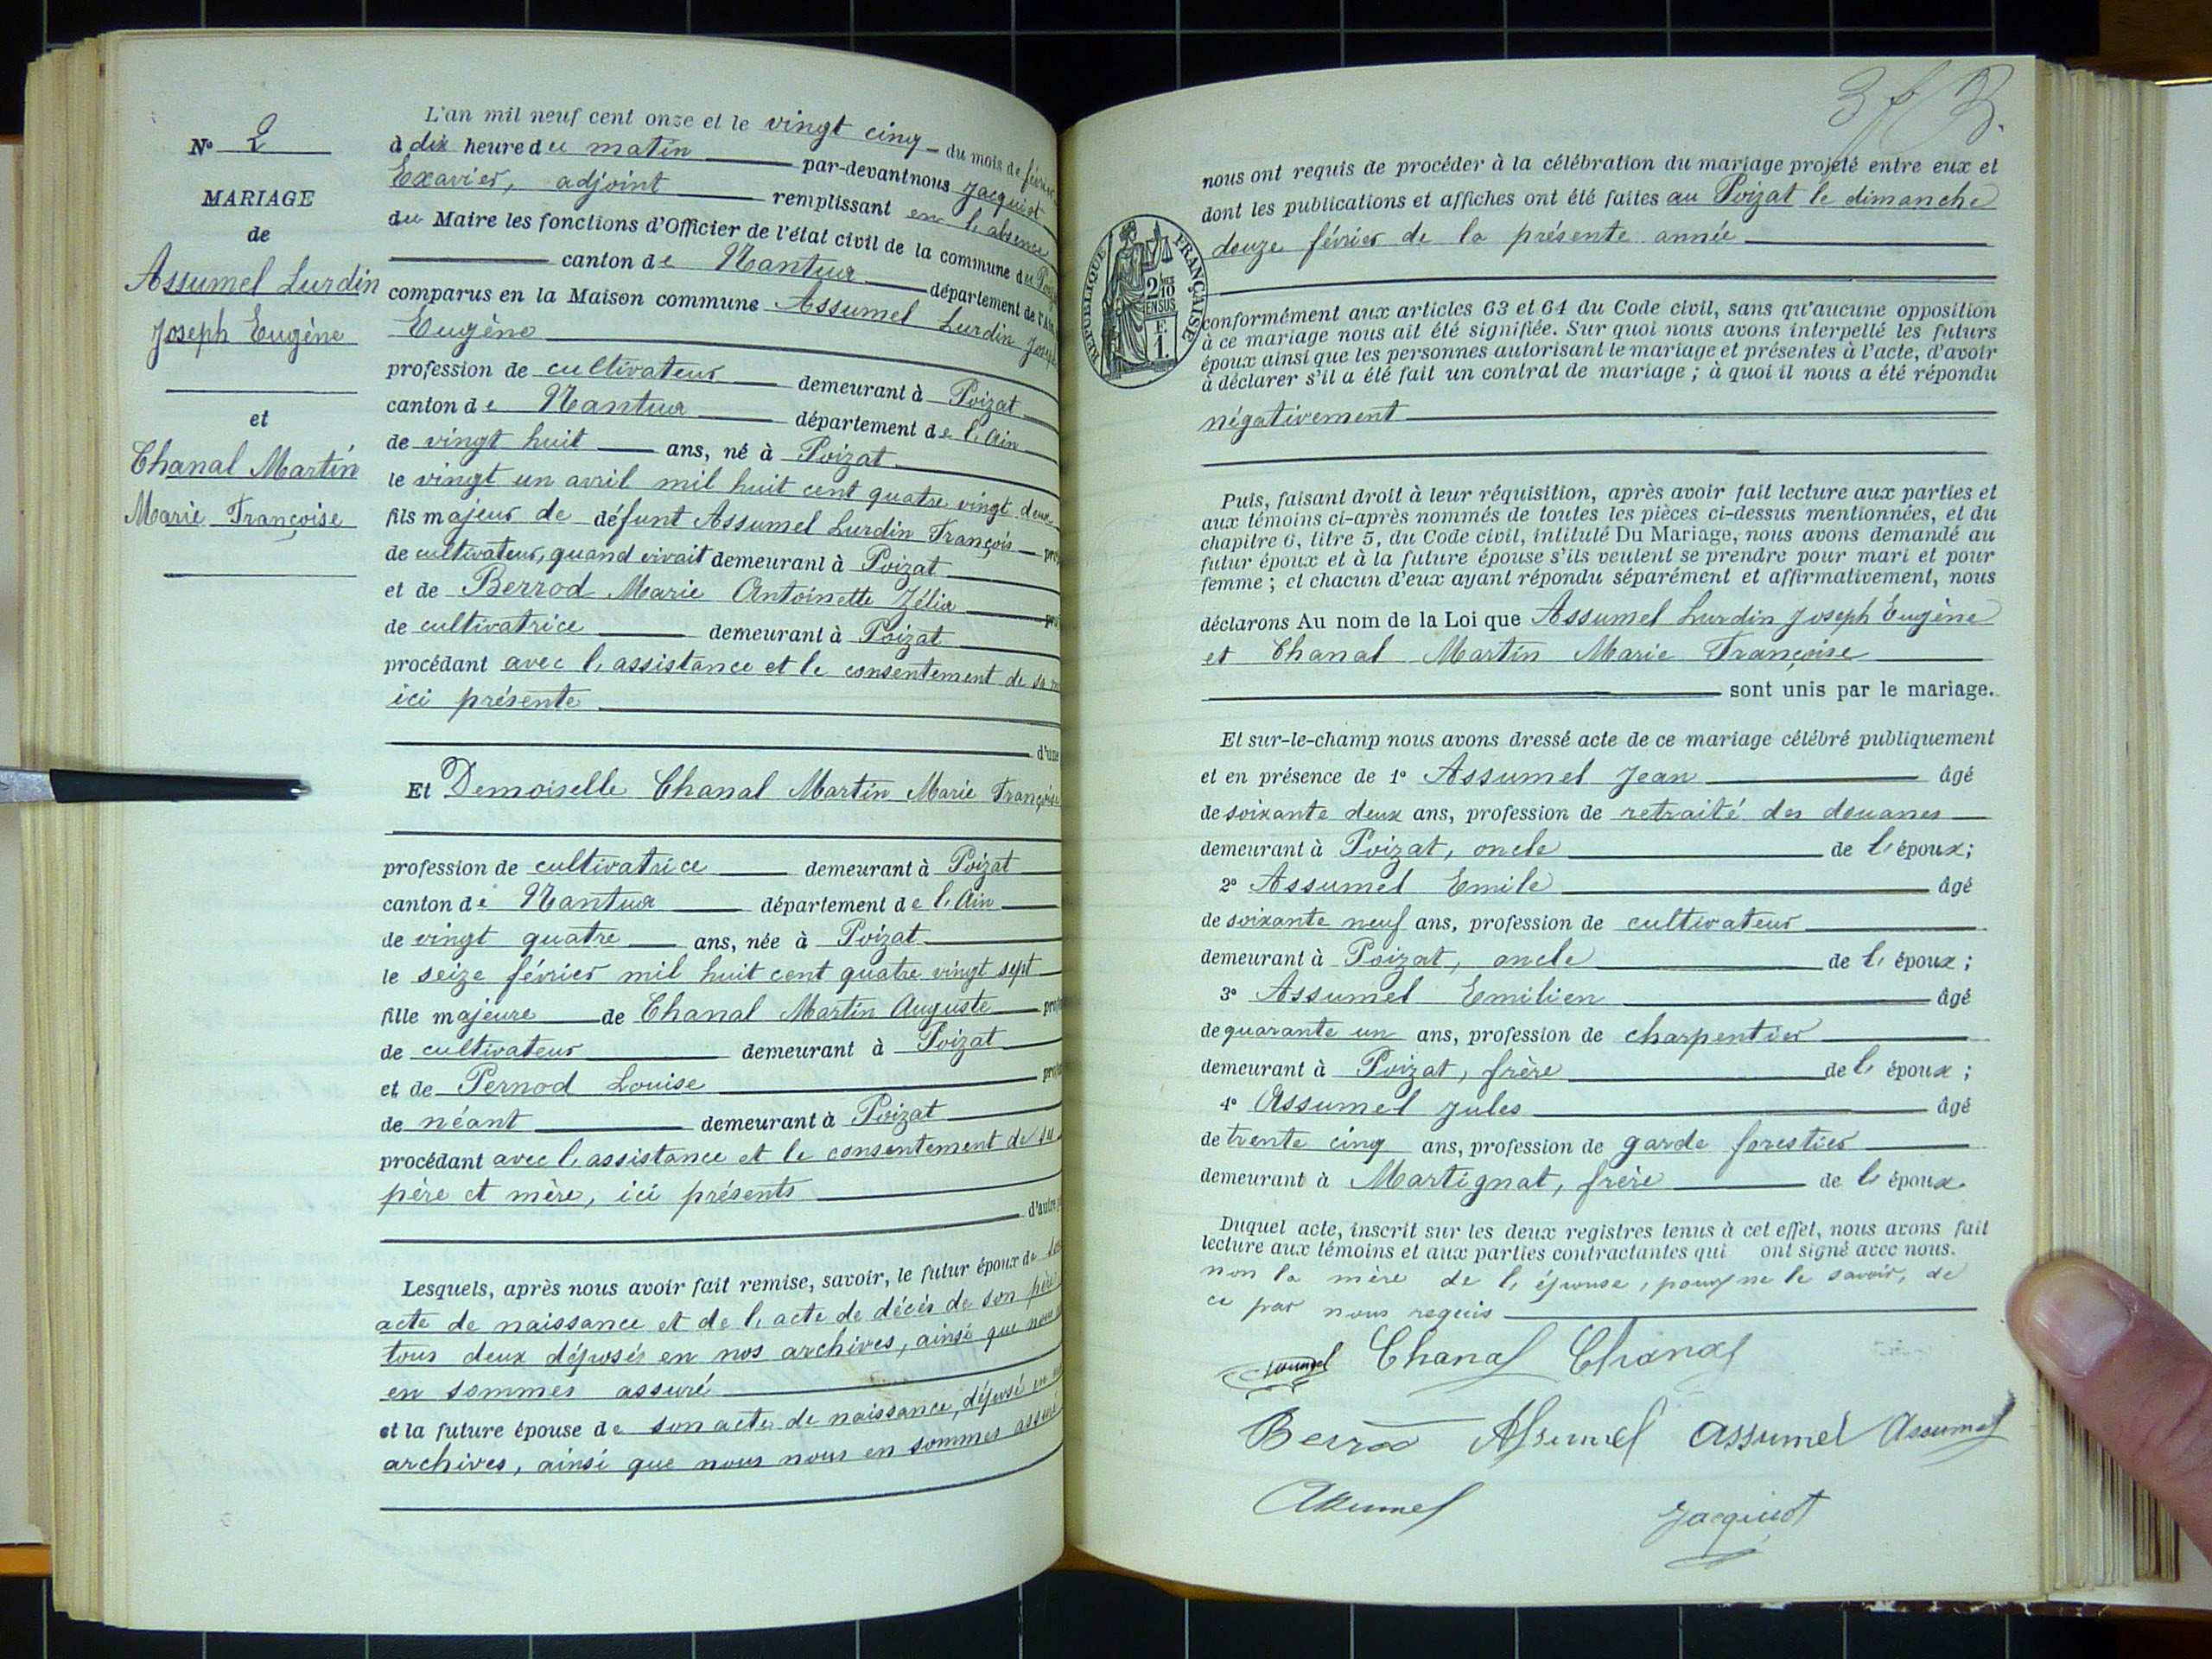 N° 2
MARIAGE
de
Assumel Lurdin
Joseph Eugène
et
Chanal Martin
Marie Françoise
L'an mil neuf cent onze et le vingt cinq du mois de février
à dix heure du matin par-devant nous Jacquiot
Exavier, adjoint remplissant en l'absence
du Maire les fonctions d'Officier de l'état civil de la commune du
canton de Nantua département de l'Ain
comparus en la Maison commune Assumel Lurdin Joseph
Eugène
profession de cultivateur demeurant à Poizat
canton de Nantua département de l'Ain
de vingt huit ans, né à Poizat
le vingt un avril mil huit cent quatre vingt deux
fils majeur de défunt Assumel Lurdin François
de cultivateur, quand vivait demeurant à Poizat
et de Berrod Marie Antoinette Zélia
de cultivatrice demeurant à Poizat
procédant avec l'assistance et le consentement de sa
ici présente
d'une
Et Demoiselle Chanal Martin Marie Françoise
profession de cultivatrice demeurant à Poizat
canton de Nantua département de l'Ain
de vingt quatre ans, née à Poizat
le seize février mil huit cent quatre vingt sept
fille majeure de Chanal Martin Auguste
de cultivateur demeurant à Poizat
et de Pernod Louise
de néant demeurant à Poizat
procédant avec l'assistance et le consentement de
père et mère, ici présents
d'autre
Lesquels, après nous avoir fait remise, savoir, le futur époux de
acte de naissance et de l'acte de décès de son père
tous deux déposés en nos archives, ainsi que nous
en sommes assuré
et la future épouse de son acte de naissance, déposé en
archives, ainsi que nous nous en sommes assuré
nous ont requis de procéder à la célébration du mariage projeté entre eux et
dont les publications et affiches ont été faites au Poizat le dimanche
douze février de la présente année
RÉPUBLIQUE FRANÇAISE
2/10
EN SUS
F.
1.
conformément aux articles 63 et 64 du Code civil, sans qu'aucune opposition
à ce mariage nous ait été signifiée. Sur quoi nous avons interpellé les futurs
époux ainsi que les personnes autorisant le mariage et présentes à l'acte, d'avoir
à déclarer s'il a été fait un contrat de mariage ; à quoi il nous a été répondu
négativement
Puis, faisant droit à leur réquisition, après avoir fait lecture aux parties et
aux témoins ci-après nommés de toutes les pièces ci-dessus mentionnées, et du
chapitre 6, titre 5, du Code civil, intitulé Du Mariage, nous avons demandé au
futur époux et à la future épouse s'ils veulent se prendre pour mari et pour
femme ; et chacun d'eux ayant répondu séparément et affirmativement, nous
déclarons Au nom de la Loi que Assumel Lurdin Joseph Eugène
et Chanal Martin Marie Françoise
sont unis par le mariage.
Et sur-le-champ nous avons dressé acte de ce mariage célébré publiquement
et en présence de 1° Assumel Jean âgé
de soixante deux ans, profession de retraité des douanes
demeurant à Poizat, oncle de l'époux;
2° Assumel Emile âgé
de soixante neuf ans, profession de cultivateur
demeurant à Poizat, oncle de l'époux ;
3° Assumel Emilien âgé
de quarante un ans, profession de charpentier
demeurant à Poizat, frère de l'époux ;
4° Assumel Jules âgé
de trente cinq ans, profession de garde forestier
demeurant à Martignat, frère de l'époux.
Duquel acte, inscrit sur les deux registres tenus à cet effet, nous avons fait
lecture aux témoins et aux parties contractantes qui ont signé avec nous.
non la mère de l'épouse, pour ne le savoir, de
ce par nous requis
Chanal Chanal
Berrod Assumel Assumel Assumel
Assumel Jacquiot